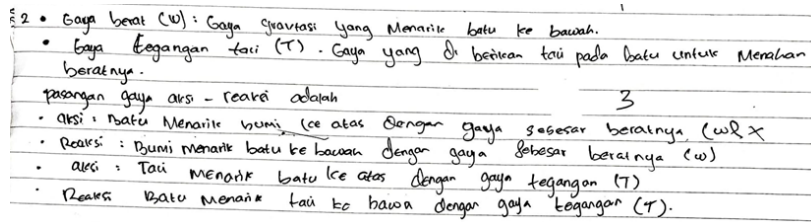 2 • Gaya berat (w) : Gaya gravtasi yang Menarik batu ke bawah.
• Gaya tegangan tali (T). Gaya yang di berikan tali pada batu untuk Menahan
beratnya.
pasangan gaya aksi - reaksi adalah
3
• aksi : Batu Menarik bumi ke atas dengan gaya sebesar beratnya (w
• Reaksi : Bumi menarik batu ke bawah dengan gaya sebesar beratnya (w)
• aksi : Tali menarik batu ke atas dengan gaya tegangan (T)
• Reaksi Batu menarik tali ke bawa dengan gaya tegangan (T).